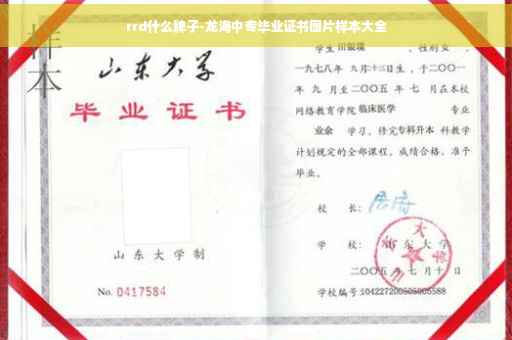 rrd什么牌子-龙海中专毕业证书图片样本大全
样本
山东大学
毕业证书
山东大学制
No. 0417584
学生 田银瑞 ，性别 女 ，
一九七八年 九月十三日生，于二〇〇一
年 九 月至二〇〇五 年 七 月在本校
网络教育学院 临床医学 专业
业余 学习，修完专科升本 科教学
计划规定的全部课程，成绩合格，准予
毕业。
校 长：
学 校： 山东大学
二〇〇五 年 七 月 十 日
学校编号:104227200505005588